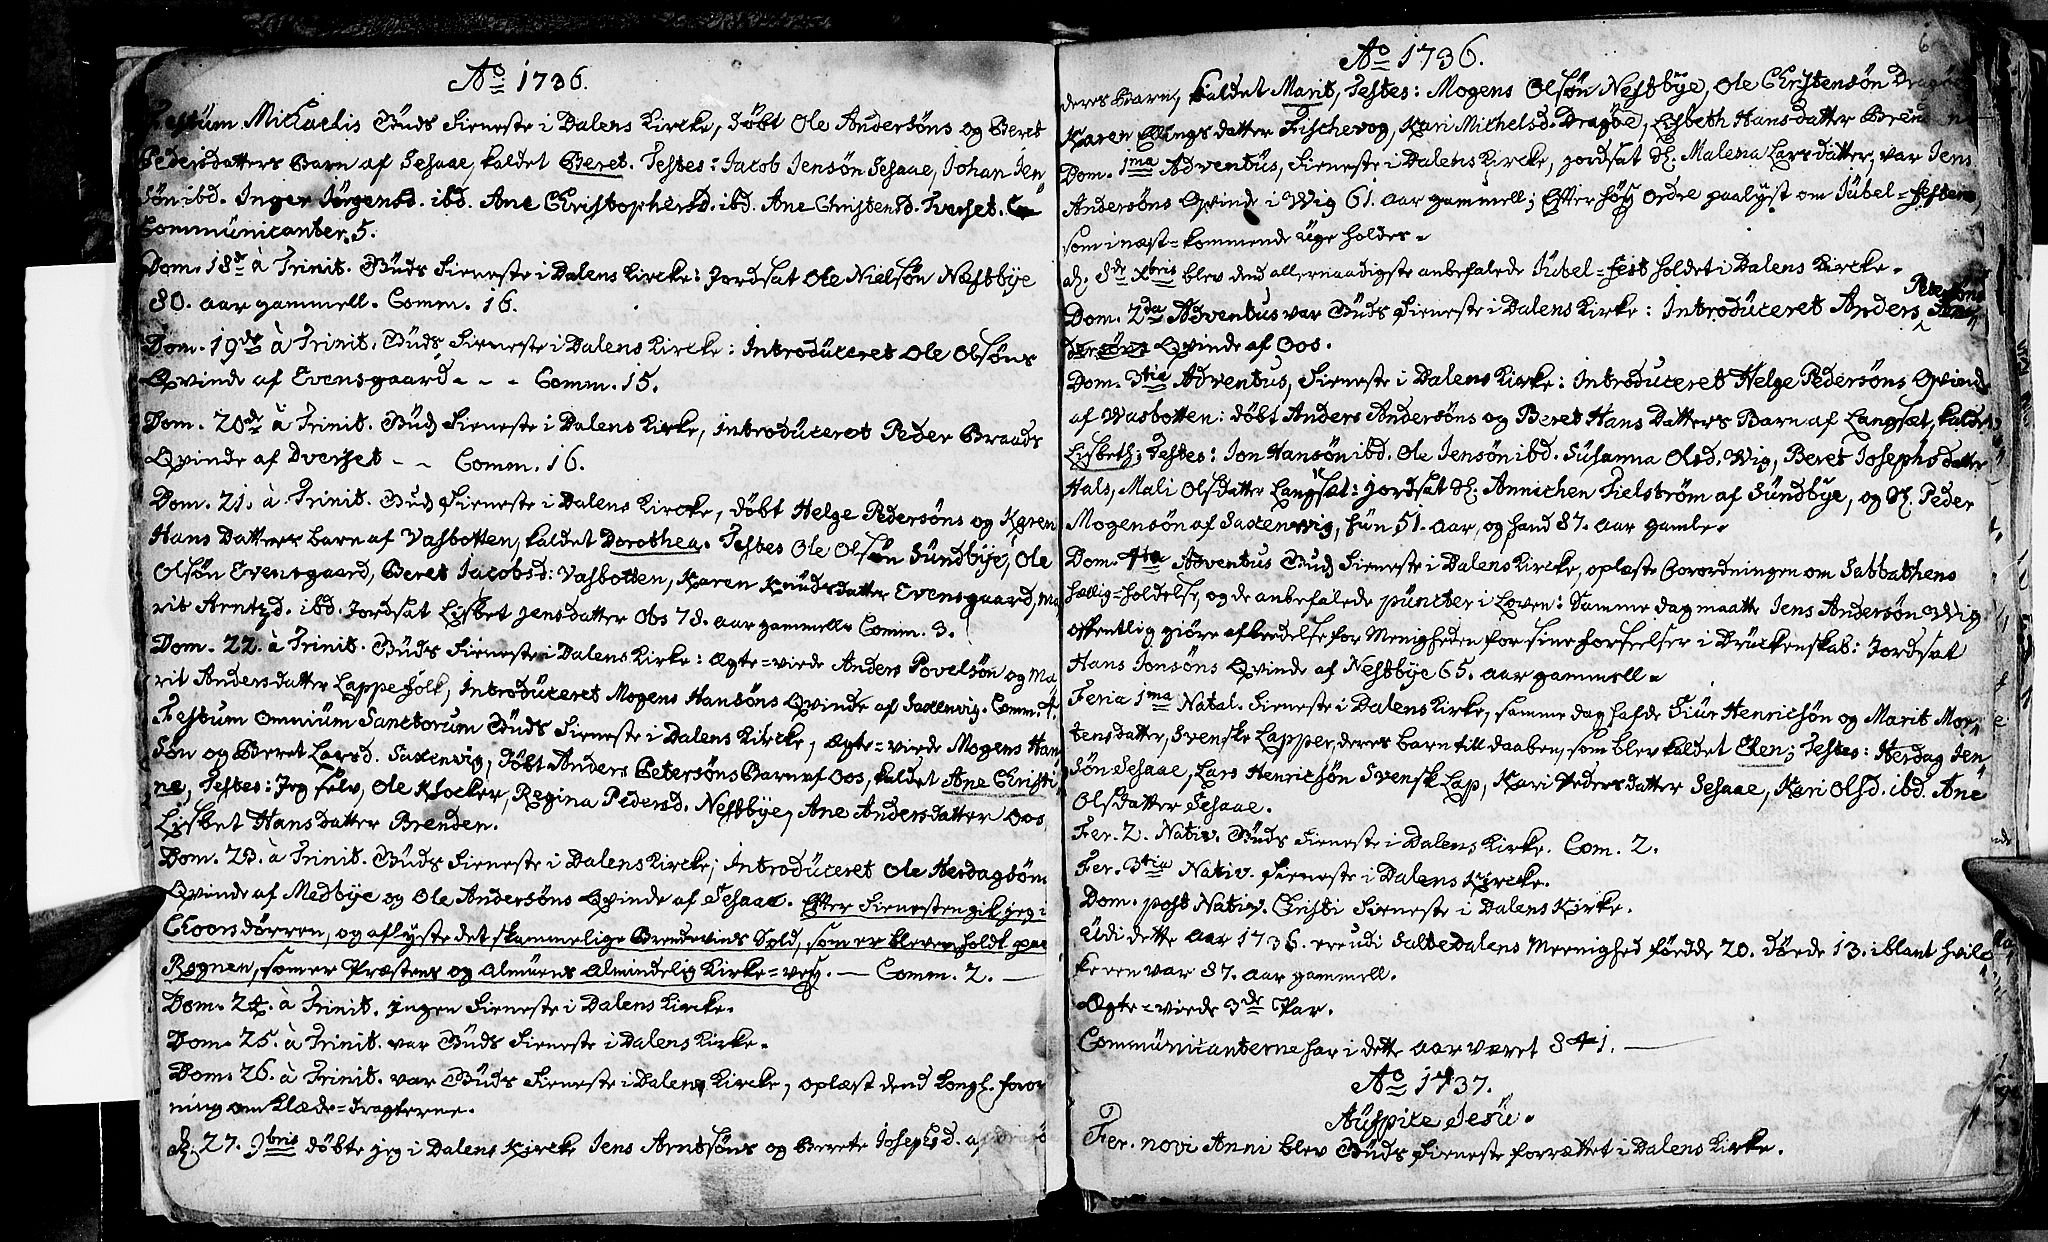 Ao 1736.
Festum Michaelis Guds Tieneste i Dalens Kircke, døbt Ole Andersøns og Beret
Pedersdatters Barn af Sesaae, kaldet Beret. Testes: Jacob Jensøn Sesaae, Johan Jen-
søn ibd. Inger Jørgensd. ibd. Ane Christophersd. ibd. Ane Christensd. Tverset.
Communicanter 5.
Dom. 18de à Trinit. Guds Tieneste i Dalens Kircke: Jordsat Ole Nielsøn Næstbye
80. aar gammell. Comm. 16.
Dom. 19de à Trinit. Guds Tieneste i Dalens Kircke: Introduceret Ole Olsøns
Qvinde af Evensgaard - - - Comm. 15.
Dom. 20de à Trinit. Guds Tieneste i Dalens Kircke, introduceret Peder Braads
Qvinde af Dverset - - Comm. 16.
Dom. 21. à Trinit. Guds Tieneste i Dalens Kircke, døbt Helge Pedersøns og Karen
Hans Datters barn af Vasbotten, kaldet Dorothea. Testes Ole Olsøn Sundbye, Ole
Olsøn Evensgaard, Beret Jacobsd: Vasbotten, Karen Knudsdatter Evensgaard, Ma-
rit Arntzd. ibd. Jordsat Lisbet Jensdatter Obs 78. aar gammell. Comm. 3.
Dom. 22. à Trinit. Guds Tieneste i Dalens Kirke: Ægte=viede Anders Povelsøn og Ma
rit Andersdatter Lappe folk, Introduceret Mogens Hansøns Qvinde af Saxenvig. Comm. 4.
Festum omnium Sanctorum Guds Tieneste i Dalens Kircke, Ægte=viede Mogens Han
søn og Beret Larsd. Saxenvig, Døbt Anders Petersøns Barn af Oos, kaldet Ane Christi
ne, Testes: Jeg selv, Ole Klocker, Regina Pedersd. Nestbye, Ane Andersdatter Oos,
Lisbet Hansdatter Brenden.
Dom. 23. à Trinit. Guds Tieneste i Dalens Kircke; Introduceret Ole Herdagsøns
Qvinde af Medbye og Ole Andersøns Qvinde af Sesaae. Efter Tienesten gik jeg i
Choorsdørren, og aflyste det skammelige Brendeviins Sold, som er bleven holdt paa
Rognen, som er Præstens og Almuens Almindelig Kirke=vey. — Comm. 2. —
Dom. 24. à Trinit. Ingen Tieneste i Dalens Kircke.
Dom. 25. à Trinit. var Guds Tieneste i Dalens Kirke.
Dom. 26. à Trinit. var Guds Tieneste i Dalens Kircke, oplæst dend Kongl. foror
ning om Klæde=dragterne.
d. 27. 9bris døbte jeg i Dalens Kircke Jens Arntsøns og Berete Josephsd. af
Ao 1736.
6
deres Barn, kaldet Marit, Testes: Mogens Olsøn Nestbye, Ole Christensøn Dragøe
Karen Ellingsdatter Fischevog, Kari Michelsd. Dragøe, Lisbeth Hansdatter Brenden
Dom. 1ma Adventus, Tieneste i Dalens Kircke, jordsat d. Malena Larsdatter, var Jens
Andersøns Qvinde i Wig 61. aar gammell; Efter høy ordre paalyst om Jubel=festen,
som i næst=kommende Uge holdes.
d. 8de Xbris blev dend allernaadigste anbefalede Jubel=fest holdet i Dalens Kircke.
Dom. 2da Adventus var Guds Tieneste i Dalens Kirke: Introduceret Anders Petersøns
Qvinde af Oos.
Dom. 3tia Adventus, Tieneste i Dalens Kirke: Introduceret Helge Pedersøns Qvinde
af Wasbotten: døbt Anders Andersøns og Beret Hans Datters Barn af Langset, kaldet
Lisbeth; Testes: Jon Hansøn ibd. Ole Jensøn ibd. Susanna Olsd. Wig, Beret Josephsdatter
Hals, Mali Olsdatter Langset: jordsat d. Annichen Fielstrøm af Sundbye, og d. Peder
Mogensøn af Saxenvig, hun 51. aar, og hand 87. aar gamle.
Dom. 4ta Adventus Guds Tieneste i Dalens Kircke, oplæste forordningen om Sabbathens
hællig=holdelse, og de anbefalede puncter i Loven: Samme dag maatte Jens Andersøn Wig
offentlig giøre afbedelse for Menigheden for sine forseelser i Druckenskab: Jordsat
Hans Jonsøns Qvinde af Nestbye 65. aar gammell.
Feria 1ma Natal. Tieneste i Dalens Kirke, samme dag hafde Siur Henricsøn og Marit Mor-
tensdatter, Svenske Lapper, deres barn till daaben, som blev kaldet Elen; Testes: Herdag Jen
søn Sesaae, Lars Henricsøn Svensk Lap, Kari Pedersdatter Sesaae, Kari Olsd. ibd. Ane
Olsdatter Sesaae.
Fer. 2. Nativ. Guds Tieneste i Dalens Kirke. Com. 2.
Fer. 3tia Nativ. Tieneste i Dalens Kircke.
Dom. post Nativ. Christi Tieneste i Dalens Kirke.
Udi dette Aar 1736. ere udi Saltedalens Meenighed fødde 20. døde 13. iblant hvil-
ke een var 87. aar gammell.
Ægte=viede 3de Par.
Communicanterne har i dette aar været 841. —
Ao 1737.
Auspice Jesu.
Fer. novi Anni blev Guds Tieneste forrættet i Dalens Kirke.